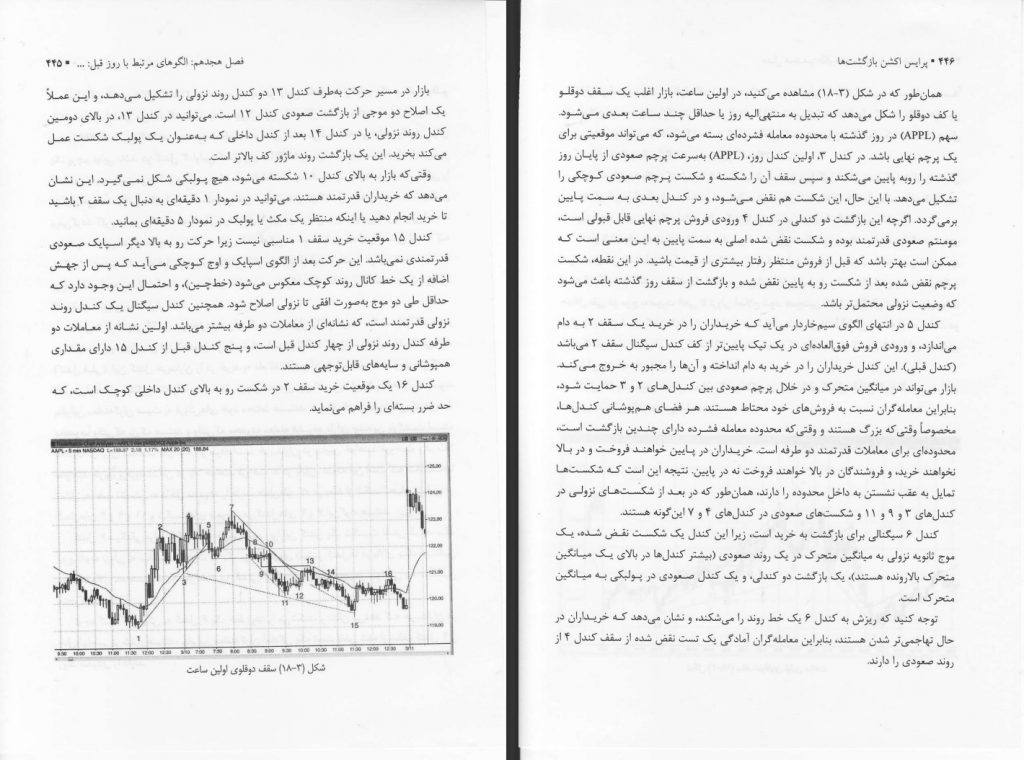 ۴۴۶ ▪ پرایس اکشن بازگشت‌ها
همان‌طور که در شکل (۳-۱۸) مشاهده می‌کنید، در اولین ساعت، بازار اغلب یک سقف دوقلو
یا کف دوقلو را شکل می‌دهد که تبدیل به منتهی‌الیه روز یا حداقل چند ساعت بعدی می‌شود.
سهم (APPL) در روز گذشته با محدوده معامله فشرده‌ای بسته می‌شود، که می‌تواند موقعیتی برای
یک پرچم نهایی باشد. در کندل ۳، اولین کندل روز، (APPL) به‌سرعت پرچم صعودی از پایان روز
گذشته را روبه پایین می‌شکند و سپس سقف آن را شکسته و شکست پرچم صعودی کوچکی را
تشکیل می‌دهد. با این حال، این شکست هم نقض می‌شود، و در کندل بعدی به سمت پایین
برمی‌گردد. اگرچه این بازگشت دو کندلی در کندل ۴ ورودی فروش پرچم نهایی قابل قبولی است،
مومنتم صعودی قدرتمند بوده و شکست نقض شده اصلی به سمت پایین به این معنی است که
ممکن است بهتر باشد که قبل از فروش منتظر رفتار بیشتری از قیمت باشید. در این نقطه، شکست
پرچم نقض شده بعد از شکست رو به پایین نقض شده و بازگشت از سقف روز گذشته باعث می‌شود
که وضعیت نزولی محتمل‌تر باشد.
کندل ۵ در انتهای الگوی سیم‌خاردار می‌آید که خریداران را در خرید یک سقف ۲ به دام
می‌اندازد، و ورودی فروش فوق‌العاده‌ای در یک تیک پایین‌تر از کف کندل سیگنال سقف ۲ می‌باشد
(کندل قبلی). این کندل خریداران را در خرید به دام انداخته و آن‌ها را مجبور به خروج می‌کند.
بازار می‌تواند در میانگین متحرک و در خلال پرچم صعودی بین کندل‌های ۲ و ۳ حمایت شود،
بنابراین معامله‌گران نسبت به فروش‌های خود محتاط هستند. هر فضای هم‌پوشانی کندل‌ها،
مخصوصاً وقتی‌که بزرگ هستند و وقتی‌که محدوده معامله فشرده دارای چندین بازگشت است،
محدوده‌ای برای معاملات قدرتمند دو طرفه است. خریداران در پایین خواهند فروخت و در بالا
نخواهند خرید، و فروشندگان در بالا خواهند فروخت نه در پایین. نتیجه این است که شکست‌ها
تمایل به عقب نشستن به داخل محدوده را دارند، همان‌طور که در بعد از شکست‌های نزولی در
کندل‌های ۳ و ۹ و ۱۱ و شکست‌های صعودی در کندل‌های ۴ و ۷ این‌گونه هستند.
کندل ۶ سیگنالی برای بازگشت به خرید است، زیرا این کندل یک شکست نقض شده، یک
موج ثانویه نزولی به میانگین متحرک در یک روند صعودی (بیشتر کندل‌ها در بالای یک میانگین
متحرک بالارونده هستند)، یک بازگشت دو کندلی، و یک کندل صعودی در پولبکی به میانگین
متحرک است.
توجه کنید که ریزش به کندل ۶ یک خط روند را می‌شکند، و نشان می‌دهد که خریداران در
حال تهاجمی‌تر شدن هستند، بنابراین معامله‌گران آمادگی یک تست نقض شده از سقف کندل ۴ از
روند صعودی را دارند.
فصل هجدهم: الگوهای مرتبط با روز قبل: ... ▪ ۴۴۵
بازار در مسیر حرکت به‌طرف کندل ۱۳ دو کندل روند نزولی را تشکیل می‌دهد، و این عملاً
یک اصلاح دو موجی از بازگشت صعودی کندل ۱۲ است. می‌توانید در کندل ۱۳، در بالای دومین
کندل روند نزولی، یا در کندل ۱۴ بعد از کندل داخلی که به‌عنوان یک پولبک شکست عمل
می‌کند بخرید. این یک بازگشت روند ماژور کف بالاتر است.
وقتی‌که بازار به بالای کندل ۱۰ شکسته می‌شود، هیچ پولبکی شکل نمی‌گیرد. این نشان
می‌دهد که خریداران قدرتمند هستند. می‌توانید در نمودار ۱ دقیقه‌ای به دنبال یک سقف ۲ باشید
تا خرید انجام دهید یا اینکه منتظر یک مکث یا پولبک در نمودار ۵ دقیقه‌ای بمانید.
کندل ۱۵ موقعیت خرید سقف ۱ مناسبی نیست زیرا حرکت رو به بالا دیگر اسپایک صعودی
قدرتمندی نمی‌باشد. این حرکت بعد از الگوی اسپایک و اوج کوچکی می‌آید که پس از جهش
اضافه از یک خط کانال روند کوچک معکوس می‌شود (خط‌چین)، و احتمال این وجود دارد که
حداقل طی دو موج به‌صورت افقی تا نزولی اصلاح شود. همچنین کندل سیگنال یک کندل روند
نزولی قدرتمند است، که نشانه‌ای از معاملات دو طرفه بیشتر می‌باشد. اولین نشانه از معاملات دو
طرفه کندل روند نزولی از چهار کندل قبل است، و پنج کندل قبل از کندل ۱۵ دارای مقداری
همپوشانی و سایه‌های قابل‌توجهی هستند.
کندل ۱۶ یک موقعیت خرید سقف ۲ در شکست رو به بالای کندل داخلی کوچک است، که
حد ضرر بسته‌ای را فراهم می‌نماید.
AAPL - 5 min NASDAQ L=188.87 2.18 1.17% MAX 20 (20) 188.84
125.00
124.00
123.00
122.00
121.00
120.00
119.00
1 2 3 4 5 6 7 8 9 10 11 12 13 14 15 16
شکل (۳-۱۸) سقف دوقلوی اولین ساعت